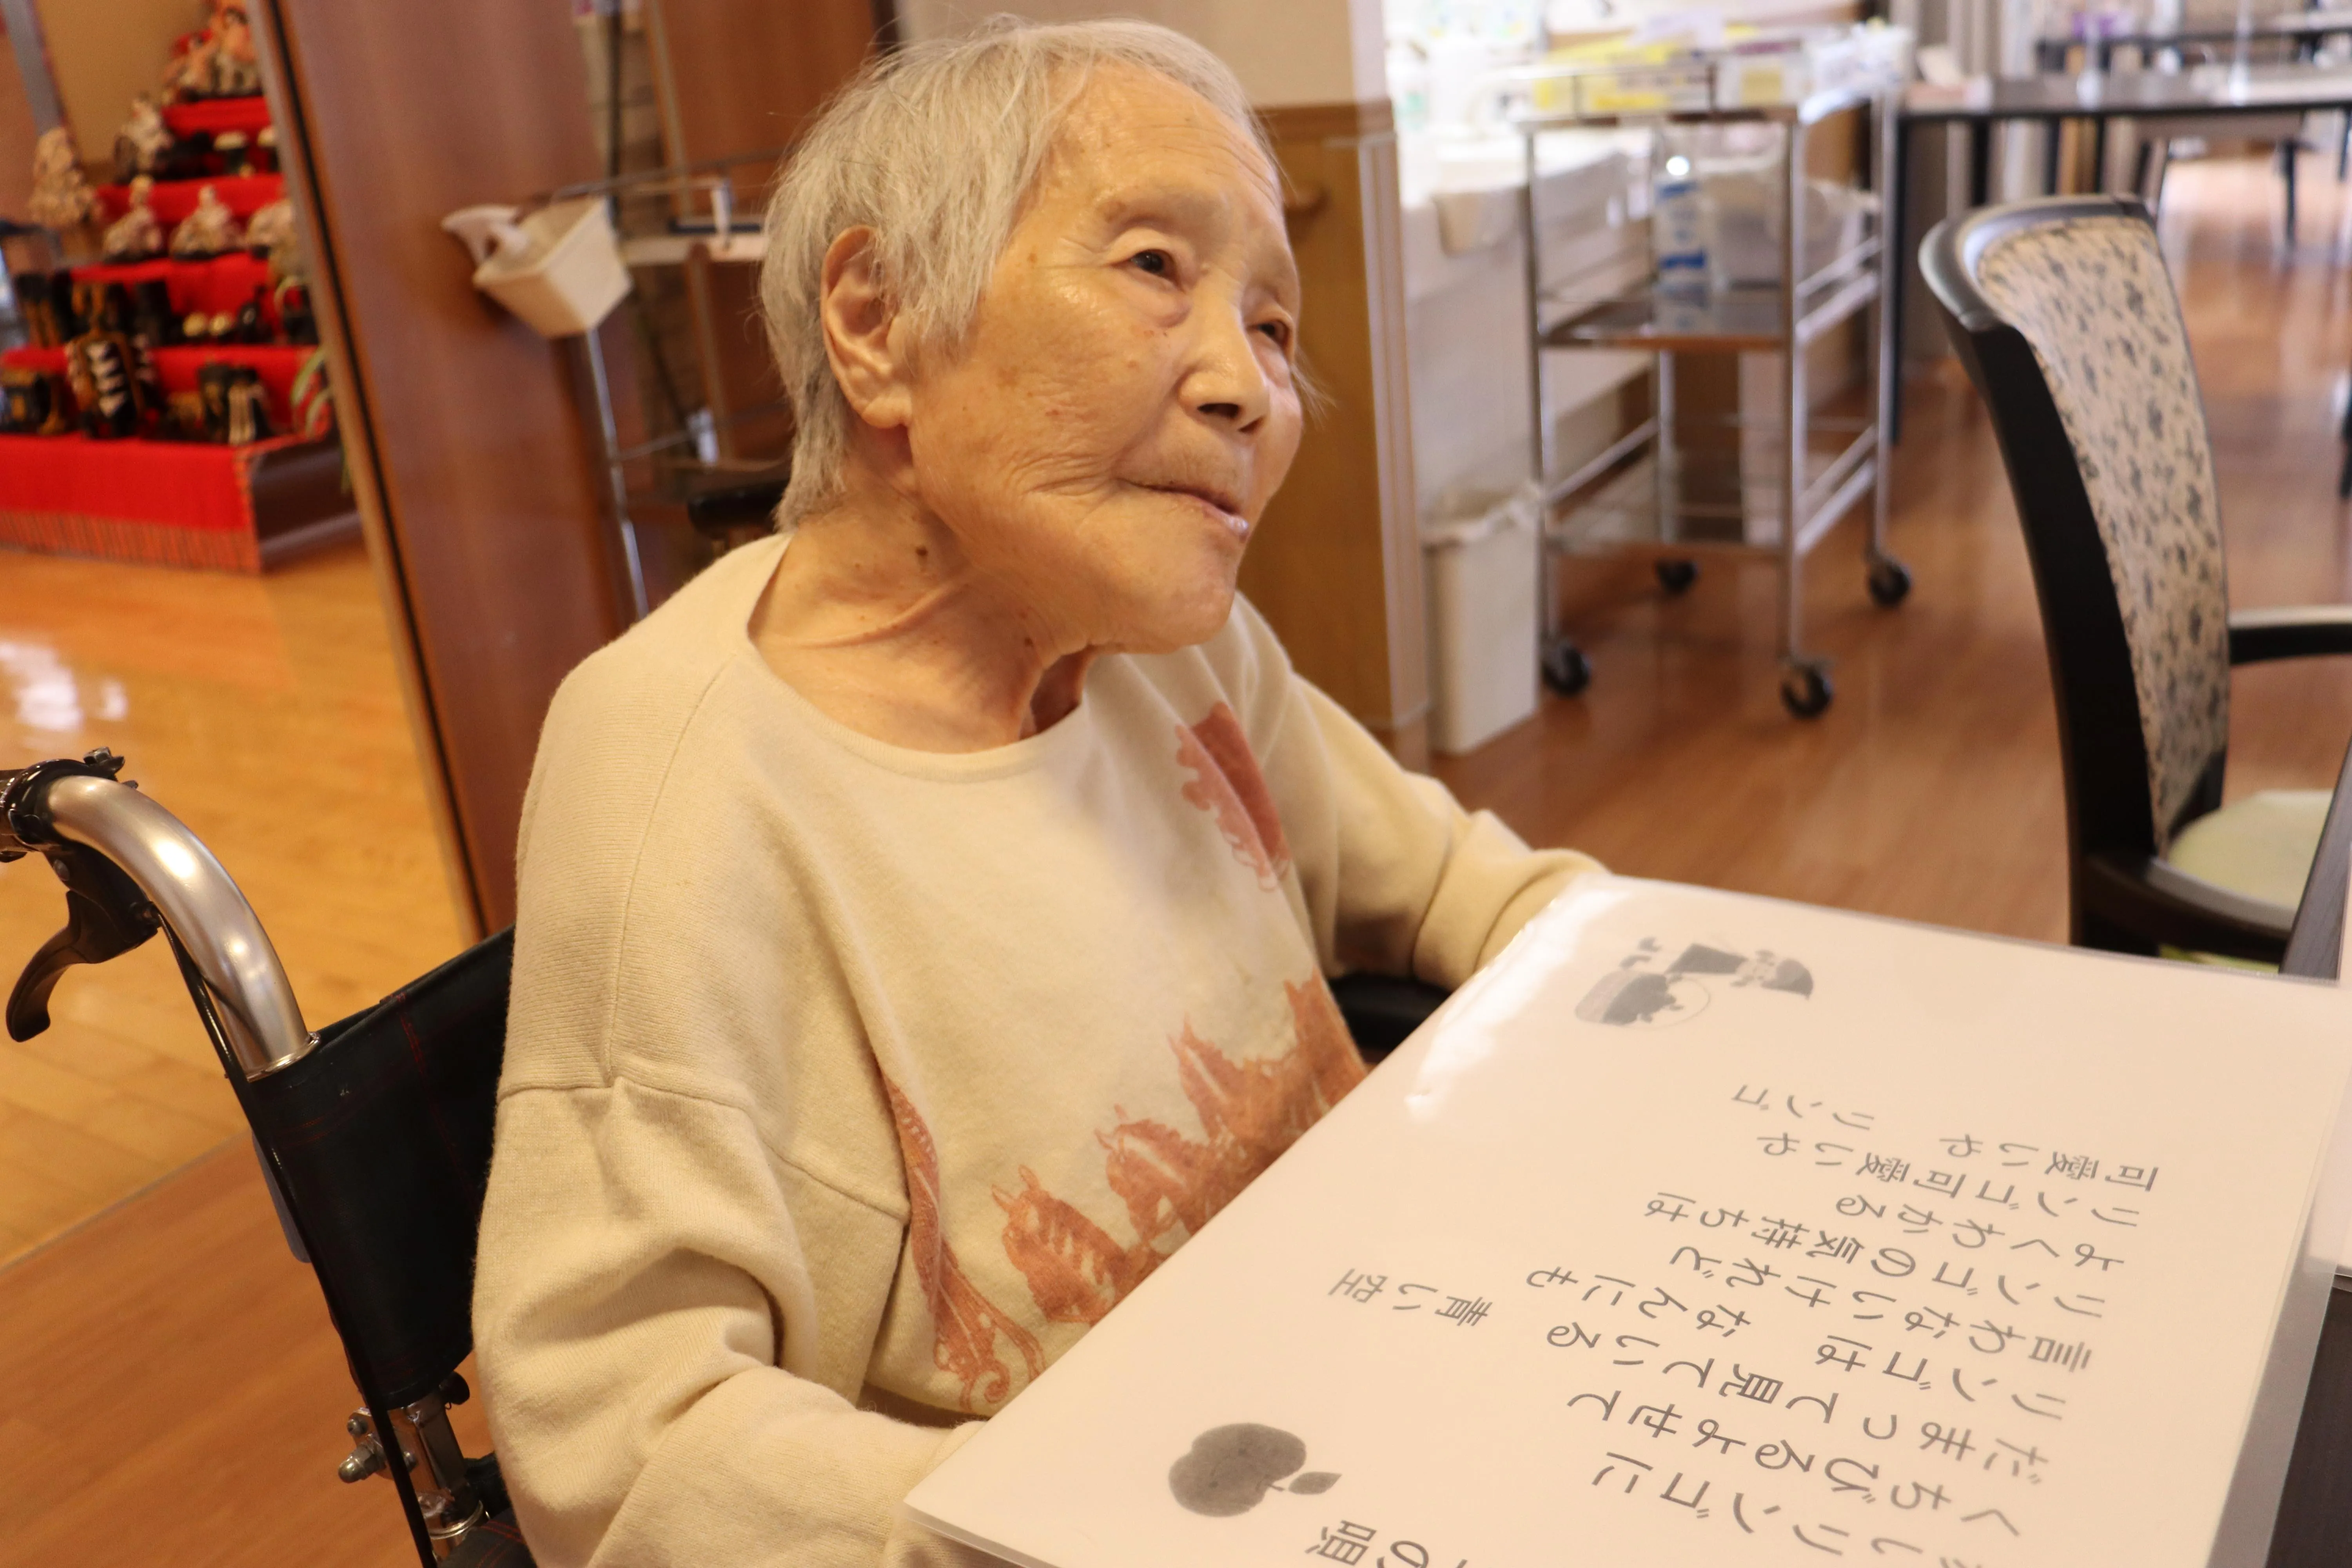 の唄
リンゴに
くちびるよせて
だまって見ている 青い空
リンゴは なんにも
言わないけれど
リンゴの気持ちは
よくわかる
リンゴ可愛いや
可愛いや リンゴ